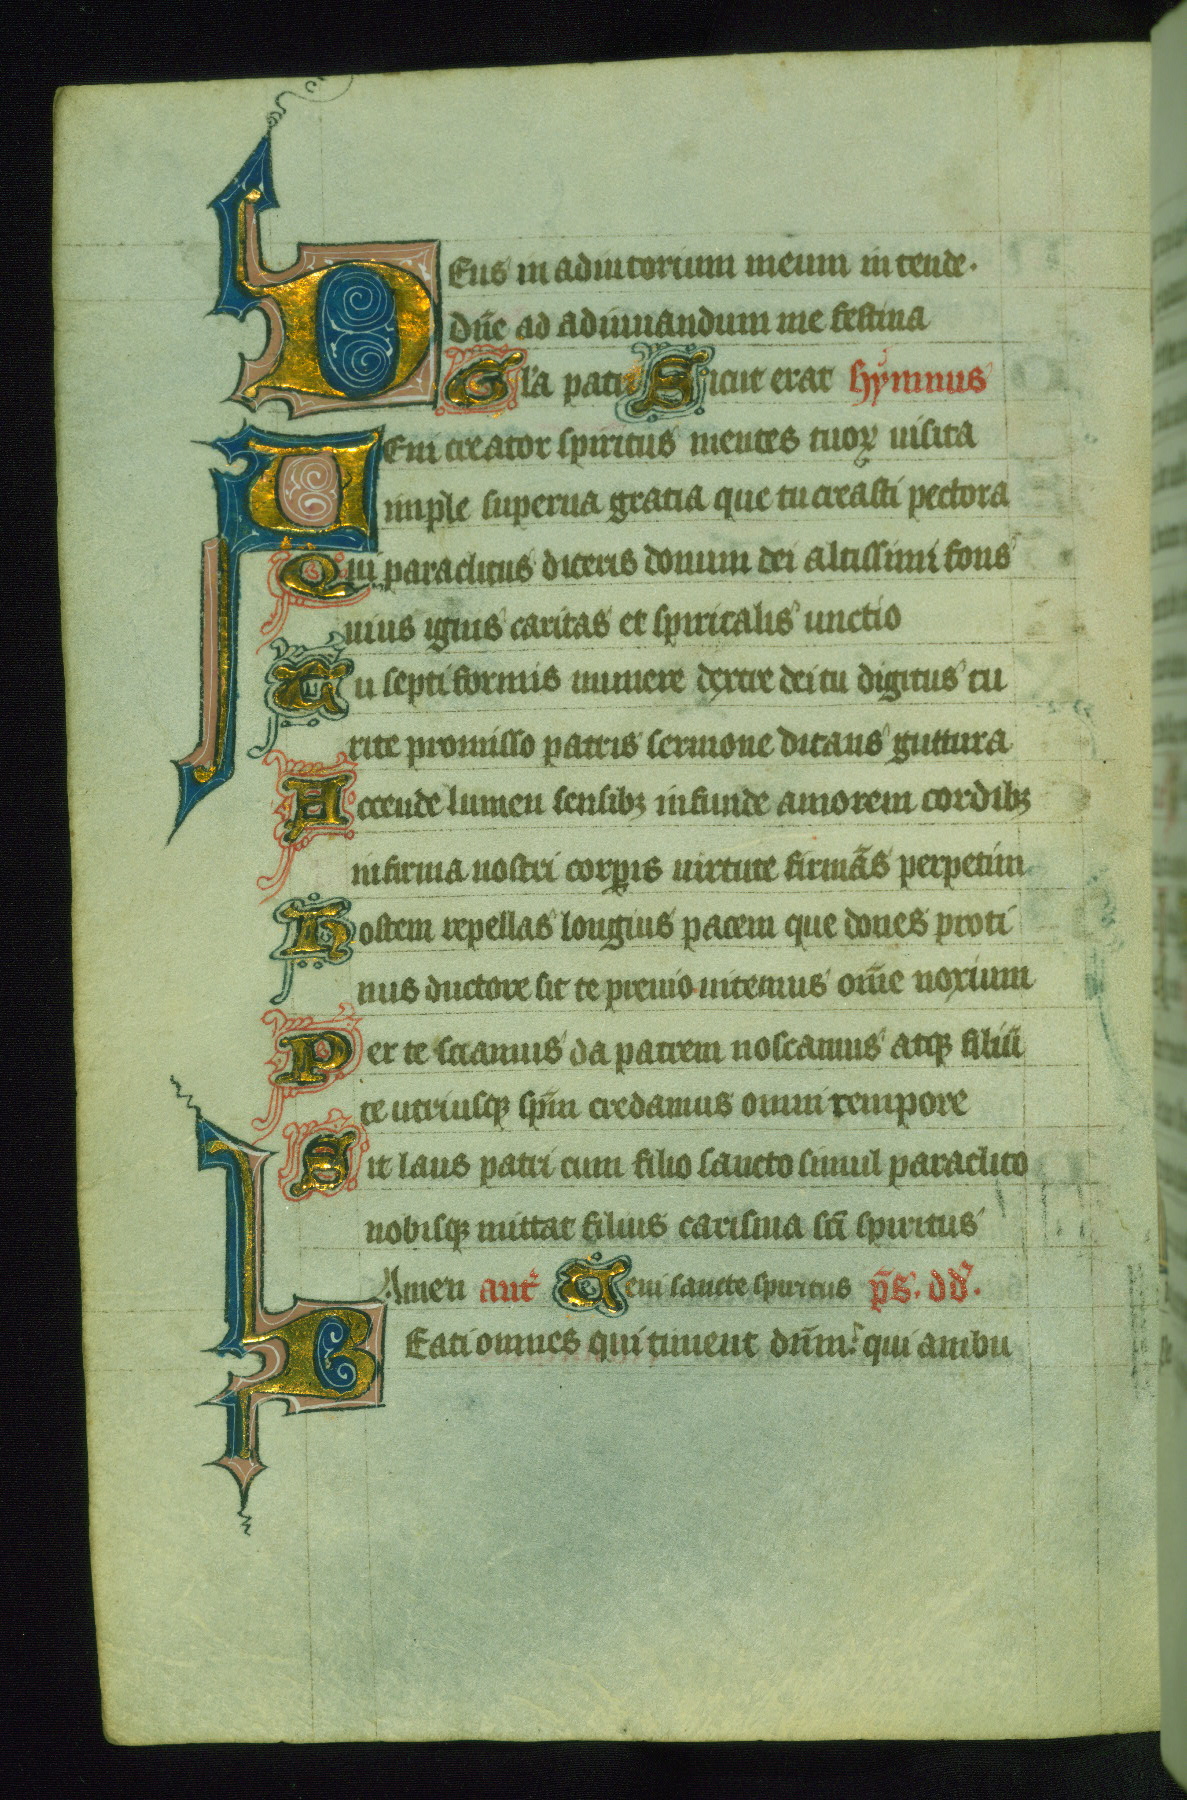 Deus in adiutorium meum intende.
dn̄e ad adiuuandum me festina
Gl'a patri Sicut erat hymnus
Veni creator spiritus mentes tuoꝝ uisita
imple superna gratia que tu creasti pectora
Qui paraclitus diceris donum dei altissimi fons
uiuus ignis caritas et spiritalis unctio
Tu septiformis munere dextre dei tu digitus tu
rite promisso patris sermone ditans guttura
Accende lumen sensibꝫ infunde amorem cordibꝫ
infirma nostri corꝑis uirtute firmās perpetim
Hostem repellas longius pacem que dones proti
nus ductore sic te preuio uitemus om̄e noxium
Per te sciamus da patrem noscamus atqꝫ filiū
te utriusqꝫ sp̄m credamus omni tempore
Sit laus patri cum filio sancto simul paraclito
nobisqꝫ mittat filius carisma sc̄i spiritus
Amen ant̄ Veni sancte spiritus p̄s. dd̄.
Beati omnes qui timent dn̄m: qui ambu